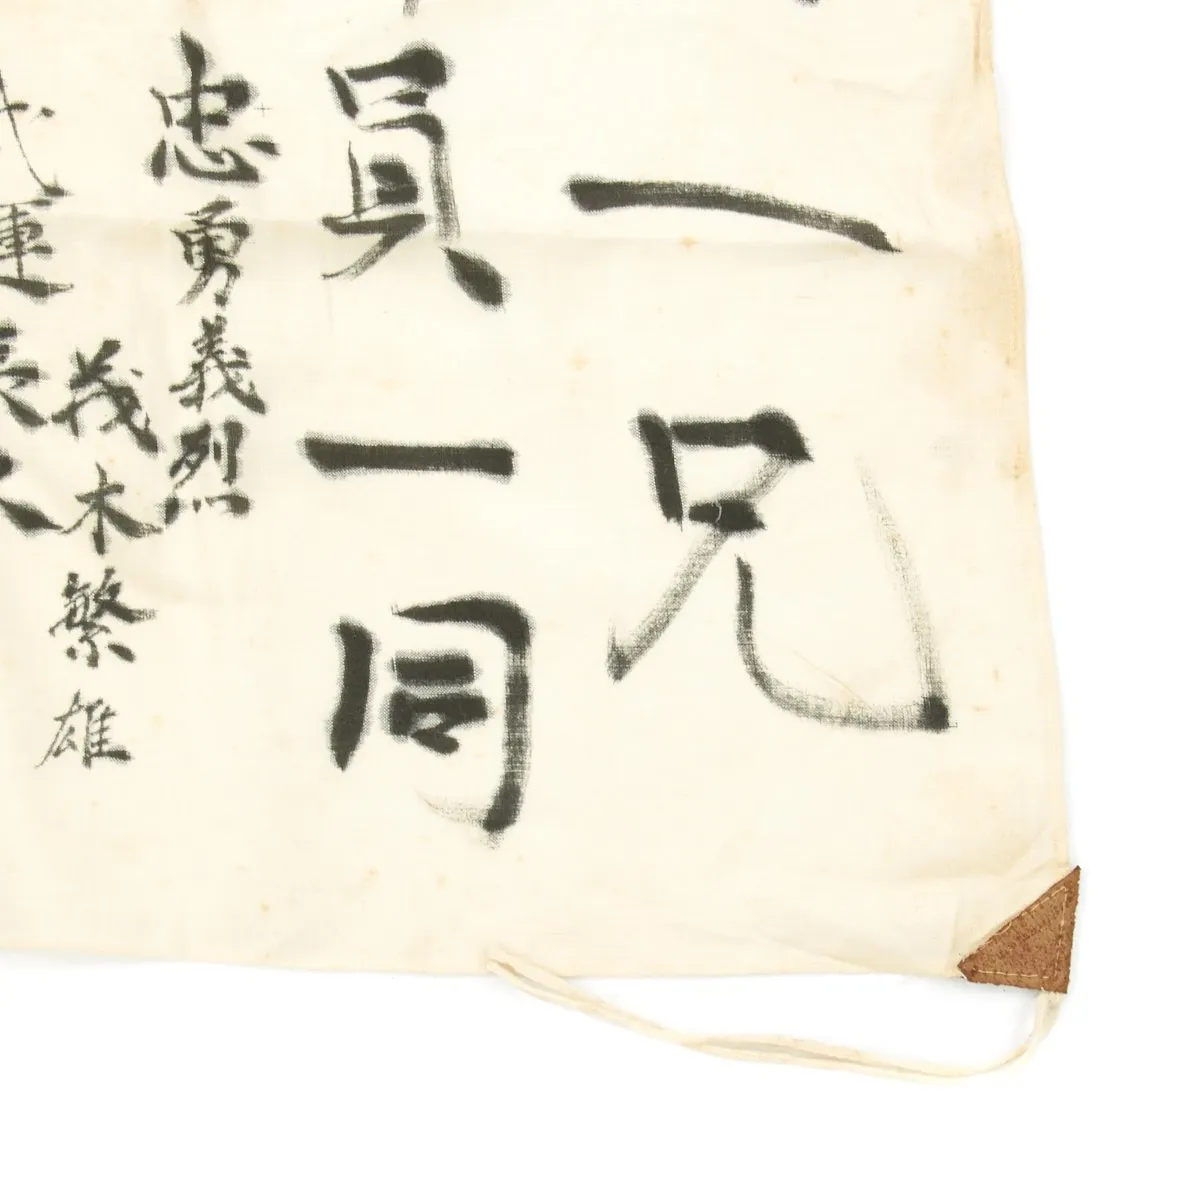 一兄
員一同
忠勇義烈
茂木繁雄
武運長久